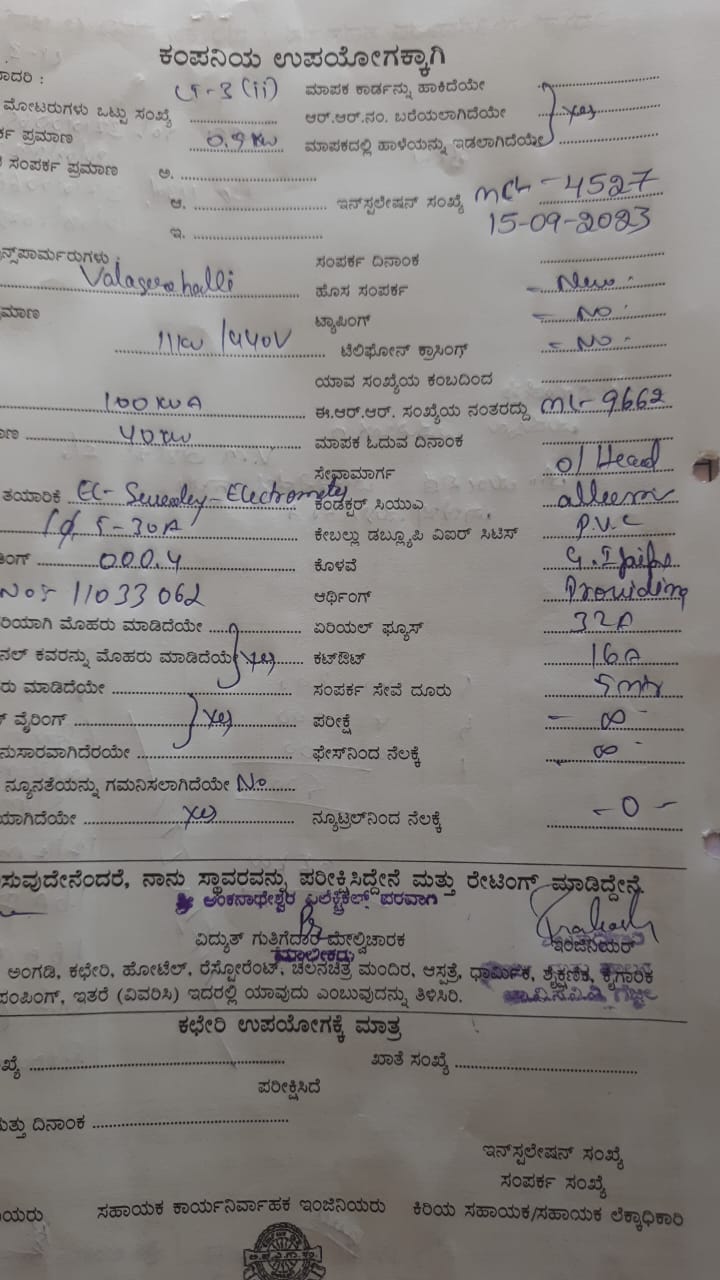 ಕಂಪನಿಯ ಉಪಯೋಗಕ್ಕಾಗಿ
ಾದರಿ :
LT-3 (ii) ಮಾಪಕ ಕಾರ್ಡನ್ನು ಹಾಕಿದೆಯೇ
ಮೋಟರುಗಳು ಒಟ್ಟು ಸಂಖ್ಯೆ ಆರ್.ಆರ್.ನಂ. ಬರೆಯಲಾಗಿದೆಯೇ Yes
ರ್ಕ ಪ್ರಮಾಣ 0.9 KW ಮಾಪಕದಲ್ಲಿ ಹಾಳೆಯನ್ನು ಇಡಲಾಗಿದೆಯೇ
ಸಂಪರ್ಕ ಪ್ರಮಾಣ ಅ.
ಆ. ಇನ್‌ಸ್ಪಲೇಷನ್ ಸಂಖ್ಯೆ 4527
ಇ. 15-09-2023
ನ್ಸ್‌ಪಾರ್ಮರುಗಳು ಸಂಪರ್ಕ ದಿನಾಂಕ
Valagerehalli ಹೊಸ ಸಂಪರ್ಕ - New
ಮಾಣ ಟ್ಯಾಪಿಂಗ್ - NO
11KV / 440V ಟೆಲಿಫೋನ್ ಕ್ರಾಸಿಂಗ್ - NO -
ಯಾವ ಸಂಖ್ಯೆಯ ಕಂಬದಿಂದ
100 KVA ಈ.ಆರ್.ಆರ್. ಸಂಖ್ಯೆಯ ನಂತರದ್ದು ML-9662
ಾಣ 40 KW ಮಾಪಕ ಓದುವ ದಿನಾಂಕ
ಸೇವಾಮಾರ್ಗ o/ Head
ತಯಾರಿಕೆ ಕಂಡಕ್ಟರ್ ಸಿಯುಎ
1ϕ 5-30A ಕೇಬಲ್ಲು ಡಬ್ಲ್ಯೂಪಿ ವಿಐರ್ ಸಿಟಿಸ್ P.V.C
ಿಂಗ್ 000.4 ಕೊಳವೆ G.I pipe
No:- 11033062 ಆರ್ಥಿಂಗ್ Providing
ರಿಯಾಗಿ ಮೊಹರು ಮಾಡಿದೆಯೇ ಏರಿಯಲ್ ಫ್ಯೂಸ್ 32A
ನಲ್ ಕವರನ್ನು ಮೊಹರು ಮಾಡಿದೆಯೇ Yes ಕಟ್‌ಔಟ್ 16A
ರು ಮಾಡಿದೆಯೇ ಸಂಪರ್ಕ ಸೇವೆ ದೂರು 5 mtr
ವೈರಿಂಗ್ Yes ಪರೀಕ್ಷೆ - ∞
ನುಸಾರವಾಗಿದೆರಯೇ ಫೇಸ್‌ನಿಂದ ನೆಲಕ್ಕೆ ∞
ನ್ಯೂನತೆಯನ್ನು ಗಮನಿಸಲಾಗಿದೆಯೇ No
ಯಾಗಿದೆಯೇ Yes ನ್ಯೂಟ್ರಲ್‌ನಿಂದ ನೆಲಕ್ಕೆ - 0 -
ಸುವುದೇನೆಂದರೆ, ನಾನು ಸ್ಥಾವರವನ್ನು ಪರೀಕ್ಷಿಸಿದ್ದೇನೆ ಮತ್ತು ರೇಟಿಂಗ್ ಮಾಡಿದ್ದೇನೆ.
ಶ್ರೀ ಅಂಕನಾಥೇಶ್ವರ ಎಲೆಕ್ಟ್ರಿಕಲ್ಸ್ ಪರವಾಗಿ
ವಿದ್ಯುತ್ ಗುತ್ತಿಗೆದಾರ ಮೇಲ್ವಿಚಾರಕ ಇಂಜಿನಿಯರ್
ಮಾಲೀಕರು
ಅಂಗಡಿ, ಕಛೇರಿ, ಹೋಟೆಲ್, ರೆಸ್ಟೋರೆಂಟ್, ಚಲನಚಿತ್ರ ಮಂದಿರ, ಆಸ್ಪತ್ರೆ, ಧಾರ್ಮಿಕ, ಶೈಕ್ಷಣಿಕ, ಕೈಗಾರಿಕ
ಪಂಪಿಂಗ್, ಇತರೆ (ವಿವರಿಸಿ) ಇದರಲ್ಲಿ ಯಾವುದು ಎಂಬುವುದನ್ನು ತಿಳಿಸಿರಿ.
ಕಛೇರಿ ಉಪಯೋಗಕ್ಕೆ ಮಾತ್ರ
ಖ್ಯೆ ಖಾತೆ ಸಂಖ್ಯೆ
ಪರೀಕ್ಷಿಸಿದೆ
ಮತ್ತು ದಿನಾಂಕ
ಇನ್‌ಸ್ಪಲೇಷನ್ ಸಂಖ್ಯೆ
ಸಂಪರ್ಕ ಸಂಖ್ಯೆ
ಯರು ಸಹಾಯಕ ಕಾರ್ಯನಿರ್ವಾಹಕ ಇಂಜಿನಿಯರು ಕಿರಿಯ ಸಹಾಯಕ/ಸಹಾಯಕ ಲೆಕ್ಕಾಧಿಕಾರಿ